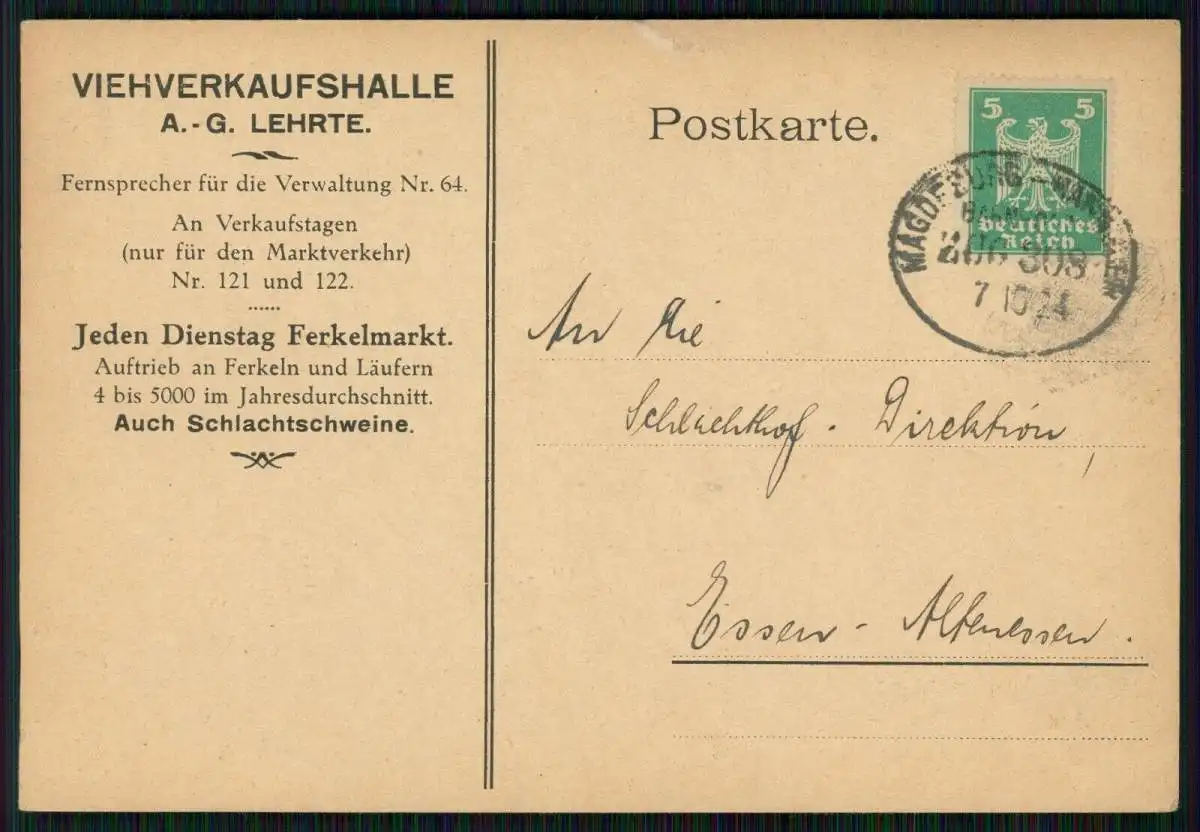 VIEHVERKAUFSHALLE
A.-G. LEHRTE.
Fernsprecher für die Verwaltung Nr. 64.
An Verkaufstagen
(nur für den Marktverkehr)
Nr. 121 und 122.
Jeden Dienstag Ferkelmarkt.
Auftrieb an Ferkeln und Läufern
4 bis 5000 im Jahresdurchschnitt.
Auch Schlachtschweine.
Postkarte.
5 5
Deutsches
Reich
MAGDEBURG
ZUG 308
7 10 24
An die
Schlachthof - Direktion,
Essen - Altenessen.